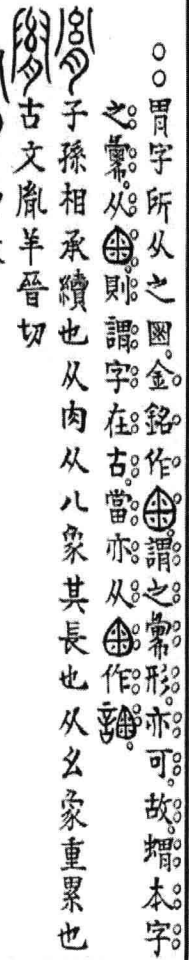 胃字所从之。金銘作謂之彙形亦可。故蝟本字
之彙。从則謂字在古當亦从作。
子孫相承續也从肉从八象其長也从幺象重累也
古文胤羊晉切